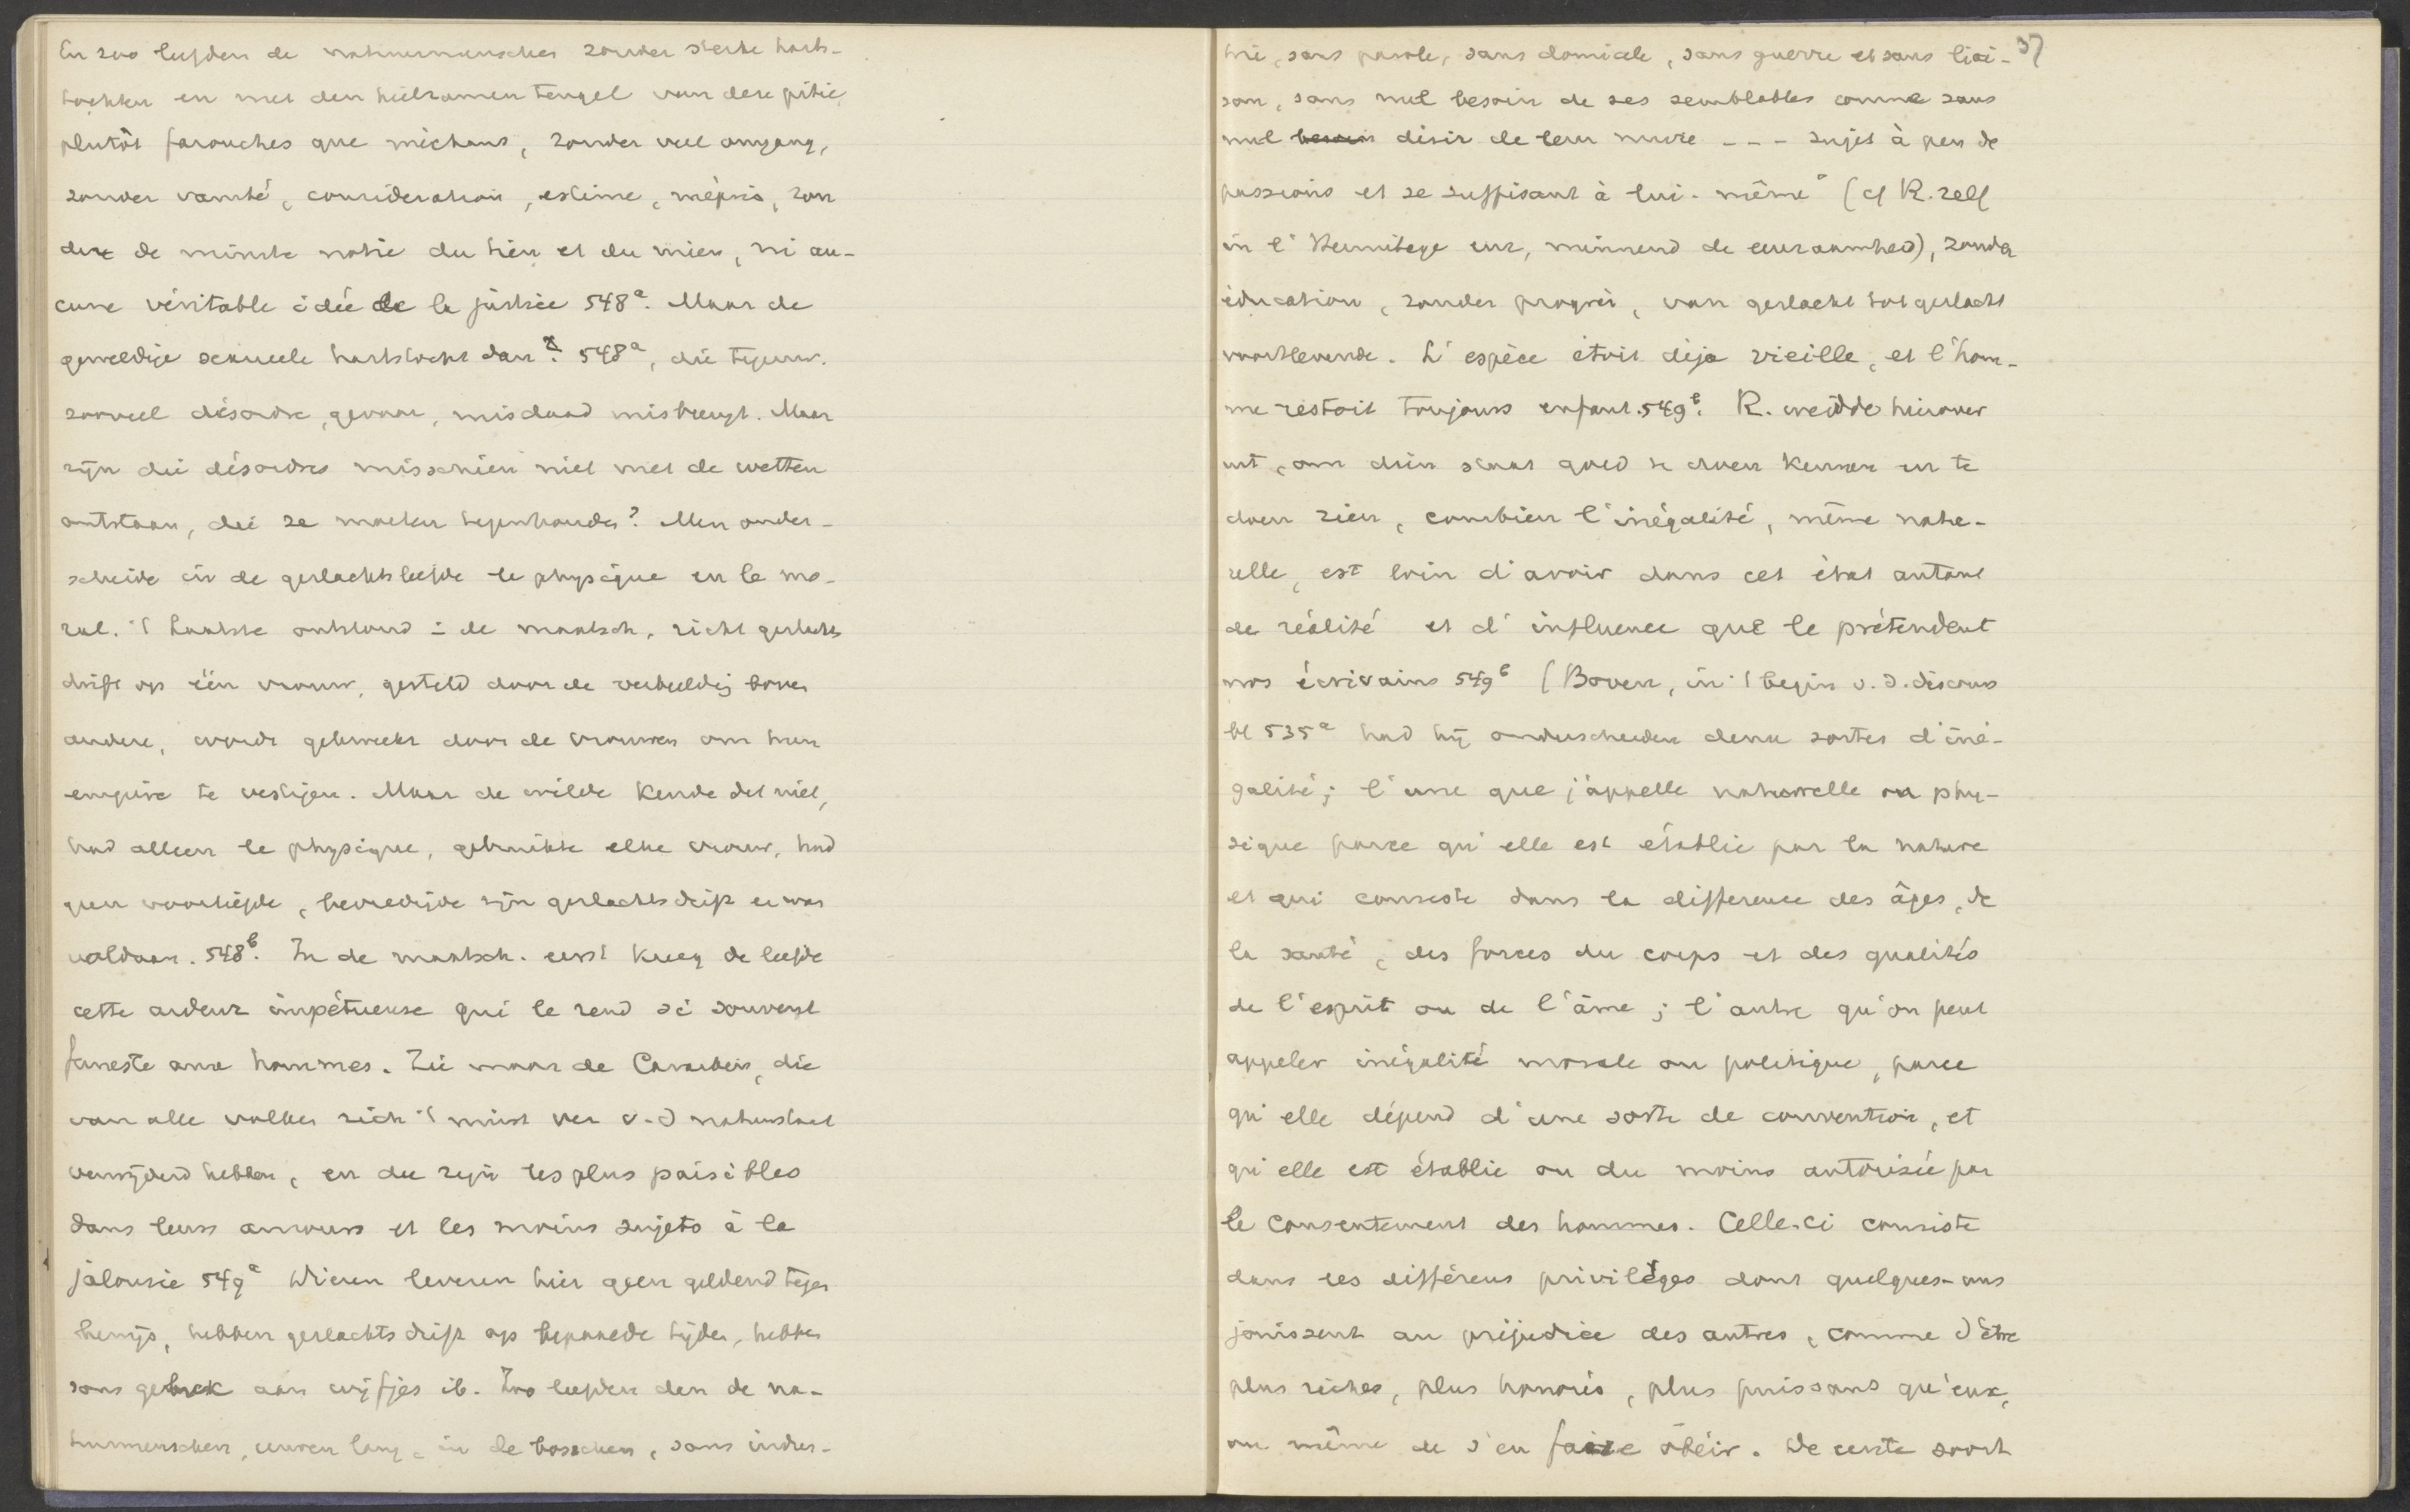 En zoo leefden de natuurmenschen zonder sterke harts-
tochten en met den heilzamen teugel van deze pitié,
plutôt farouches que méchans, zonder veel omgang,
zonder vanité, considération, estime, mépris, zon
der de minste notie du tien et du mien, ni au-
cune véritable idée de la justice 548a. Maar de
geweldige sexueele hartstocht dan? 548a, die tegenw.
zooveel désordre, gevaar, misdaad meebrengt. Maar
zijn die désordres misschien niet met de wetten
ontstaan, die ze moeten tegenhouden? Men onder-
scheide in de geslachtsliefde le physique en le mo-
ral. 't Laatste ontstond i de maatsch., richt geslachts
drift op één vrouw, gesteld door de verbeeldg boven
andere, wordt gekweekt door de vrouwen om hun
empire te vestigen. Maar de wilde kende dat niet,
had alleen le physique, gebruikte elke vrouw, had
geen voorliefde, bevredigde zijn geslachtsdrift en was
voldaan. 548b. In de maatsch. eerst kreeg de liefde
cette ardeur impétueuse qui le rend si souvent
funeste aux hommes. Zie maar de Caraiben, die
van alle volken zich 't minst ver v.d natuurstaat
verwijderd hebben, en die zijn les plus paisibles
dans leurs amours et les moins sujets à la
jalousie 549a Dieren leveren hier geen geldend tegen
bewijs, hebben geslachtsdrift op bepaalde tijden, hebben
soms gebrek aan wijfjes ib. Zoo leefden dan de na-
tuurmenschen, eeuwen lang, in de bosschen, sans indus-
37
trie, sans parole, sans domicile, sans guerre et sans liai-
son, sans nul besoin de ses semblables comme sans
nul besoin désir de leur nuire --- sujet à peu de
passions et se suffisant à lui-même" (cf R. zelf
in l'Hermitage enz, minnend de eenzaamheid), zonder
éducation, zonder progrès, van geslacht tot geslacht
voortlevende. L'espèce étoit déja vieille, et l'hom-
me restoit toujours enfant. 549b. R. weidde hierover
uit, om dien staat goed te doen kennen en te
doen zien, combien l'inégalité, même natu-
relle, est loin d'avoir dans cet état autant
de réalité et d'influence que le prétendent
nos écrivains 549b (Boven, in 't begin v.d. discours
bl 535a had hij onderscheiden deux sortes d'iné-
galité; l'une que j'appelle naturelle ou phy-
sique parce qu'elle est établie par la nature
et qui consiste dans la difference des âges, de
la santé, des forces du corps et des qualités
de l'esprit ou de l'âme; l'autre qu'on peut
appeler inégalité morale ou politique, parce
qu'elle dépend d'une sorte de convention, et
qu'elle est établie ou du moins autorisée par
le consentement des hommes. Celle-ci consiste
dans les différens privilèges dont quelques-uns
jouissent au préjudice des autres, comme d'être
plus riches, plus honorés, plus puissans qu'eux,
ou même de s'en faire obéir. De eerste soort